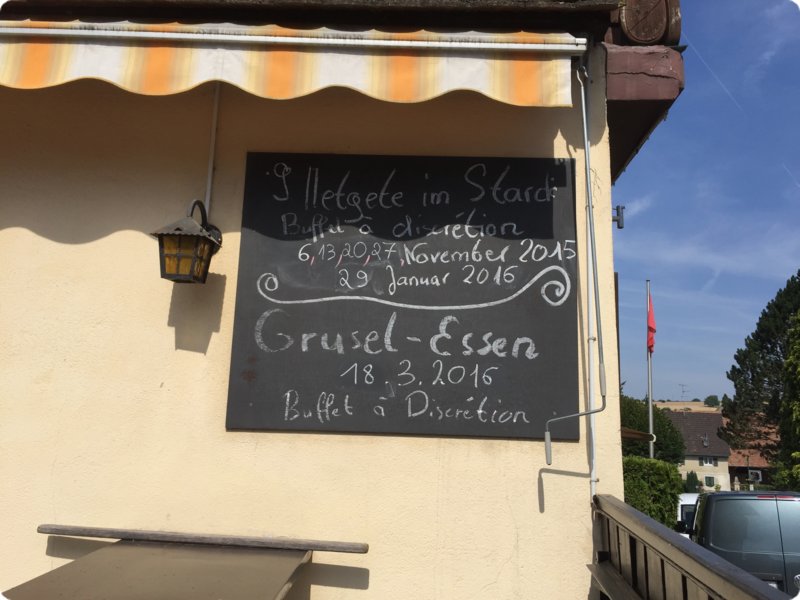 Metgete im Starch
Buffet à discrétion
6, 13, 20, 27, November 2015
29 Januar 2016
Grusel-Essen
18.3.2016
Buffet à Discrétion